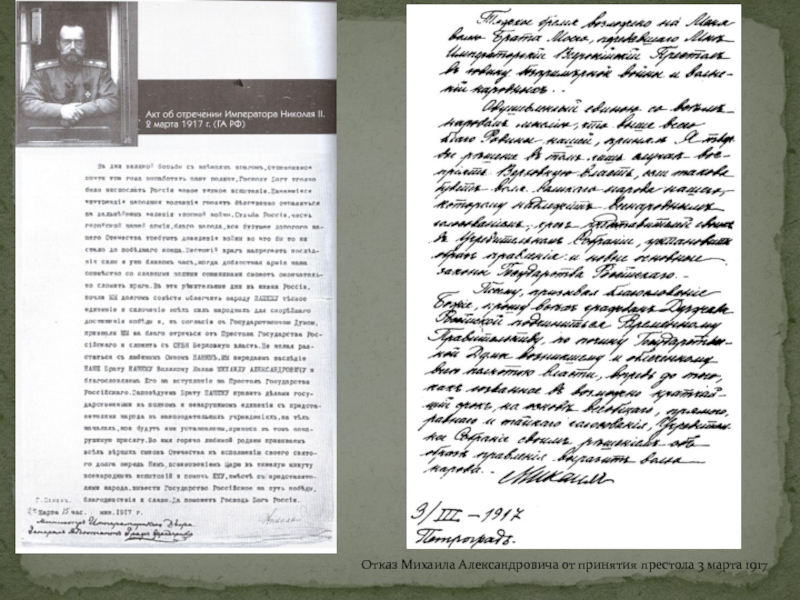 Акт об отречении Императора Николая II.
2 марта 1917 г. (ГА РФ)
Въ дни великой борьбы съ внѣшнимъ врагомъ, стремящимся
почти три года поработить нашу родину, Господу Богу угодно
было ниспослать Россіи новое тяжкое испытаніе. Начавшіяся
внутреннія народныя волненія грозятъ бѣдственно отразиться
на дальнѣйшемъ веденіи упорной войны. Судьба Россіи, честь
геройской нашей арміи, благо народа, все будущее дорогого на-
шего Отечества требуютъ доведенія войны во что бы то ни
стало до побѣднаго конца. Жестокій врагъ напрягаетъ послѣд-
нія силы и уже близокъ часъ, когда доблестная армія наша
совмѣстно со славными нашими союзниками сможетъ окончатель-
но сломить врага. Въ эти рѣшительные дни въ жизни Россіи,
почли МЫ долгомъ совѣсти облегчить народу НАШЕМУ тѣсное
единеніе и сплоченіе всѣхъ силъ народныхъ для скорѣйшаго
достиженія побѣды и, въ согласіи съ Государственною Думою,
признали МЫ за благо отречься отъ Престола Государства Рос-
сійскаго и сложить съ СЕБЯ Верховную власть. Не желая раз-
статься съ любимымъ Сыномъ НАШИМЪ, МЫ передаемъ наслѣдіе
НАШЕ Брату НАШЕМУ Великому Князю МИХАИЛУ АЛЕКСАНДРОВИЧУ и
благословляемъ Его на вступленіе на Престолъ Государства
Россійскаго. Заповѣдуемъ Брату НАШЕМУ править дѣлами госу-
дарственными въ полномъ и ненарушимомъ единеніи съ предста-
вителями народа въ законодательныхъ учрежденіяхъ, на тѣхъ
началахъ, кои будутъ ими установлены, принеся въ томъ нена-
рушимую присягу. Во имя горячо любимой родины призываемъ
всѣхъ вѣрныхъ сыновъ Отечества къ исполненію своего свято-
го долга передъ Нимъ, повиновеніемъ Царю въ тяжелую минуту
всенародныхъ испытаній и помочь ЕМУ, вмѣстѣ съ представите-
лями народа, вывести Государство Россійское на путь побѣды,
благоденствія и славы. Да поможетъ Господь Богъ Россіи.
Г. Псковъ.
2 Марта 15 час. мин. 1917 г.
Министръ Императорскаго Двора
Генералъ Адъютантъ Графъ Фредериксъ
Николай
Тяжкое бремя возложено на Меня
волею Брата Моего, передавшаго Мнѣ
Императорскій Всероссійскій Престолъ
въ годину безпримѣрной войны и волне-
ній народныхъ.
Одушевленный единою со всѣмъ
народомъ мыслію, что выше всего
благо Родины нашей, принялъ Я твер-
дое рѣшеніе въ томъ лишь случаѣ вос-
пріять Верховную власть, если такова
будетъ воля великаго народа нашего,
которому надлежитъ всенароднымъ
голосованіемъ, чрезъ представителей своихъ
въ Учредительномъ Собраніи, установить
образъ правленія и новые основные
законы Государства Россійскаго.
Посему, призывая благословеніе
Божіе, прошу всѣхъ гражданъ Державы
Россійской подчиниться Временному
Правительству, по почину Государствен-
ной Думы возникшему и облеченному
всею полнотою власти, впредь до того,
какъ созванное въ возможно кратчай-
шій срокъ, на основѣ всеобщаго, прямого,
равнаго и тайнаго голосованія, Учредитель-
ное Собраніе своимъ рѣшеніемъ объ
образѣ правленія выразитъ волю
народа.
Михаилъ
3/III – 1917
Петроградъ.
Отказ Михаила Александровича от принятия престола 3 марта 1917